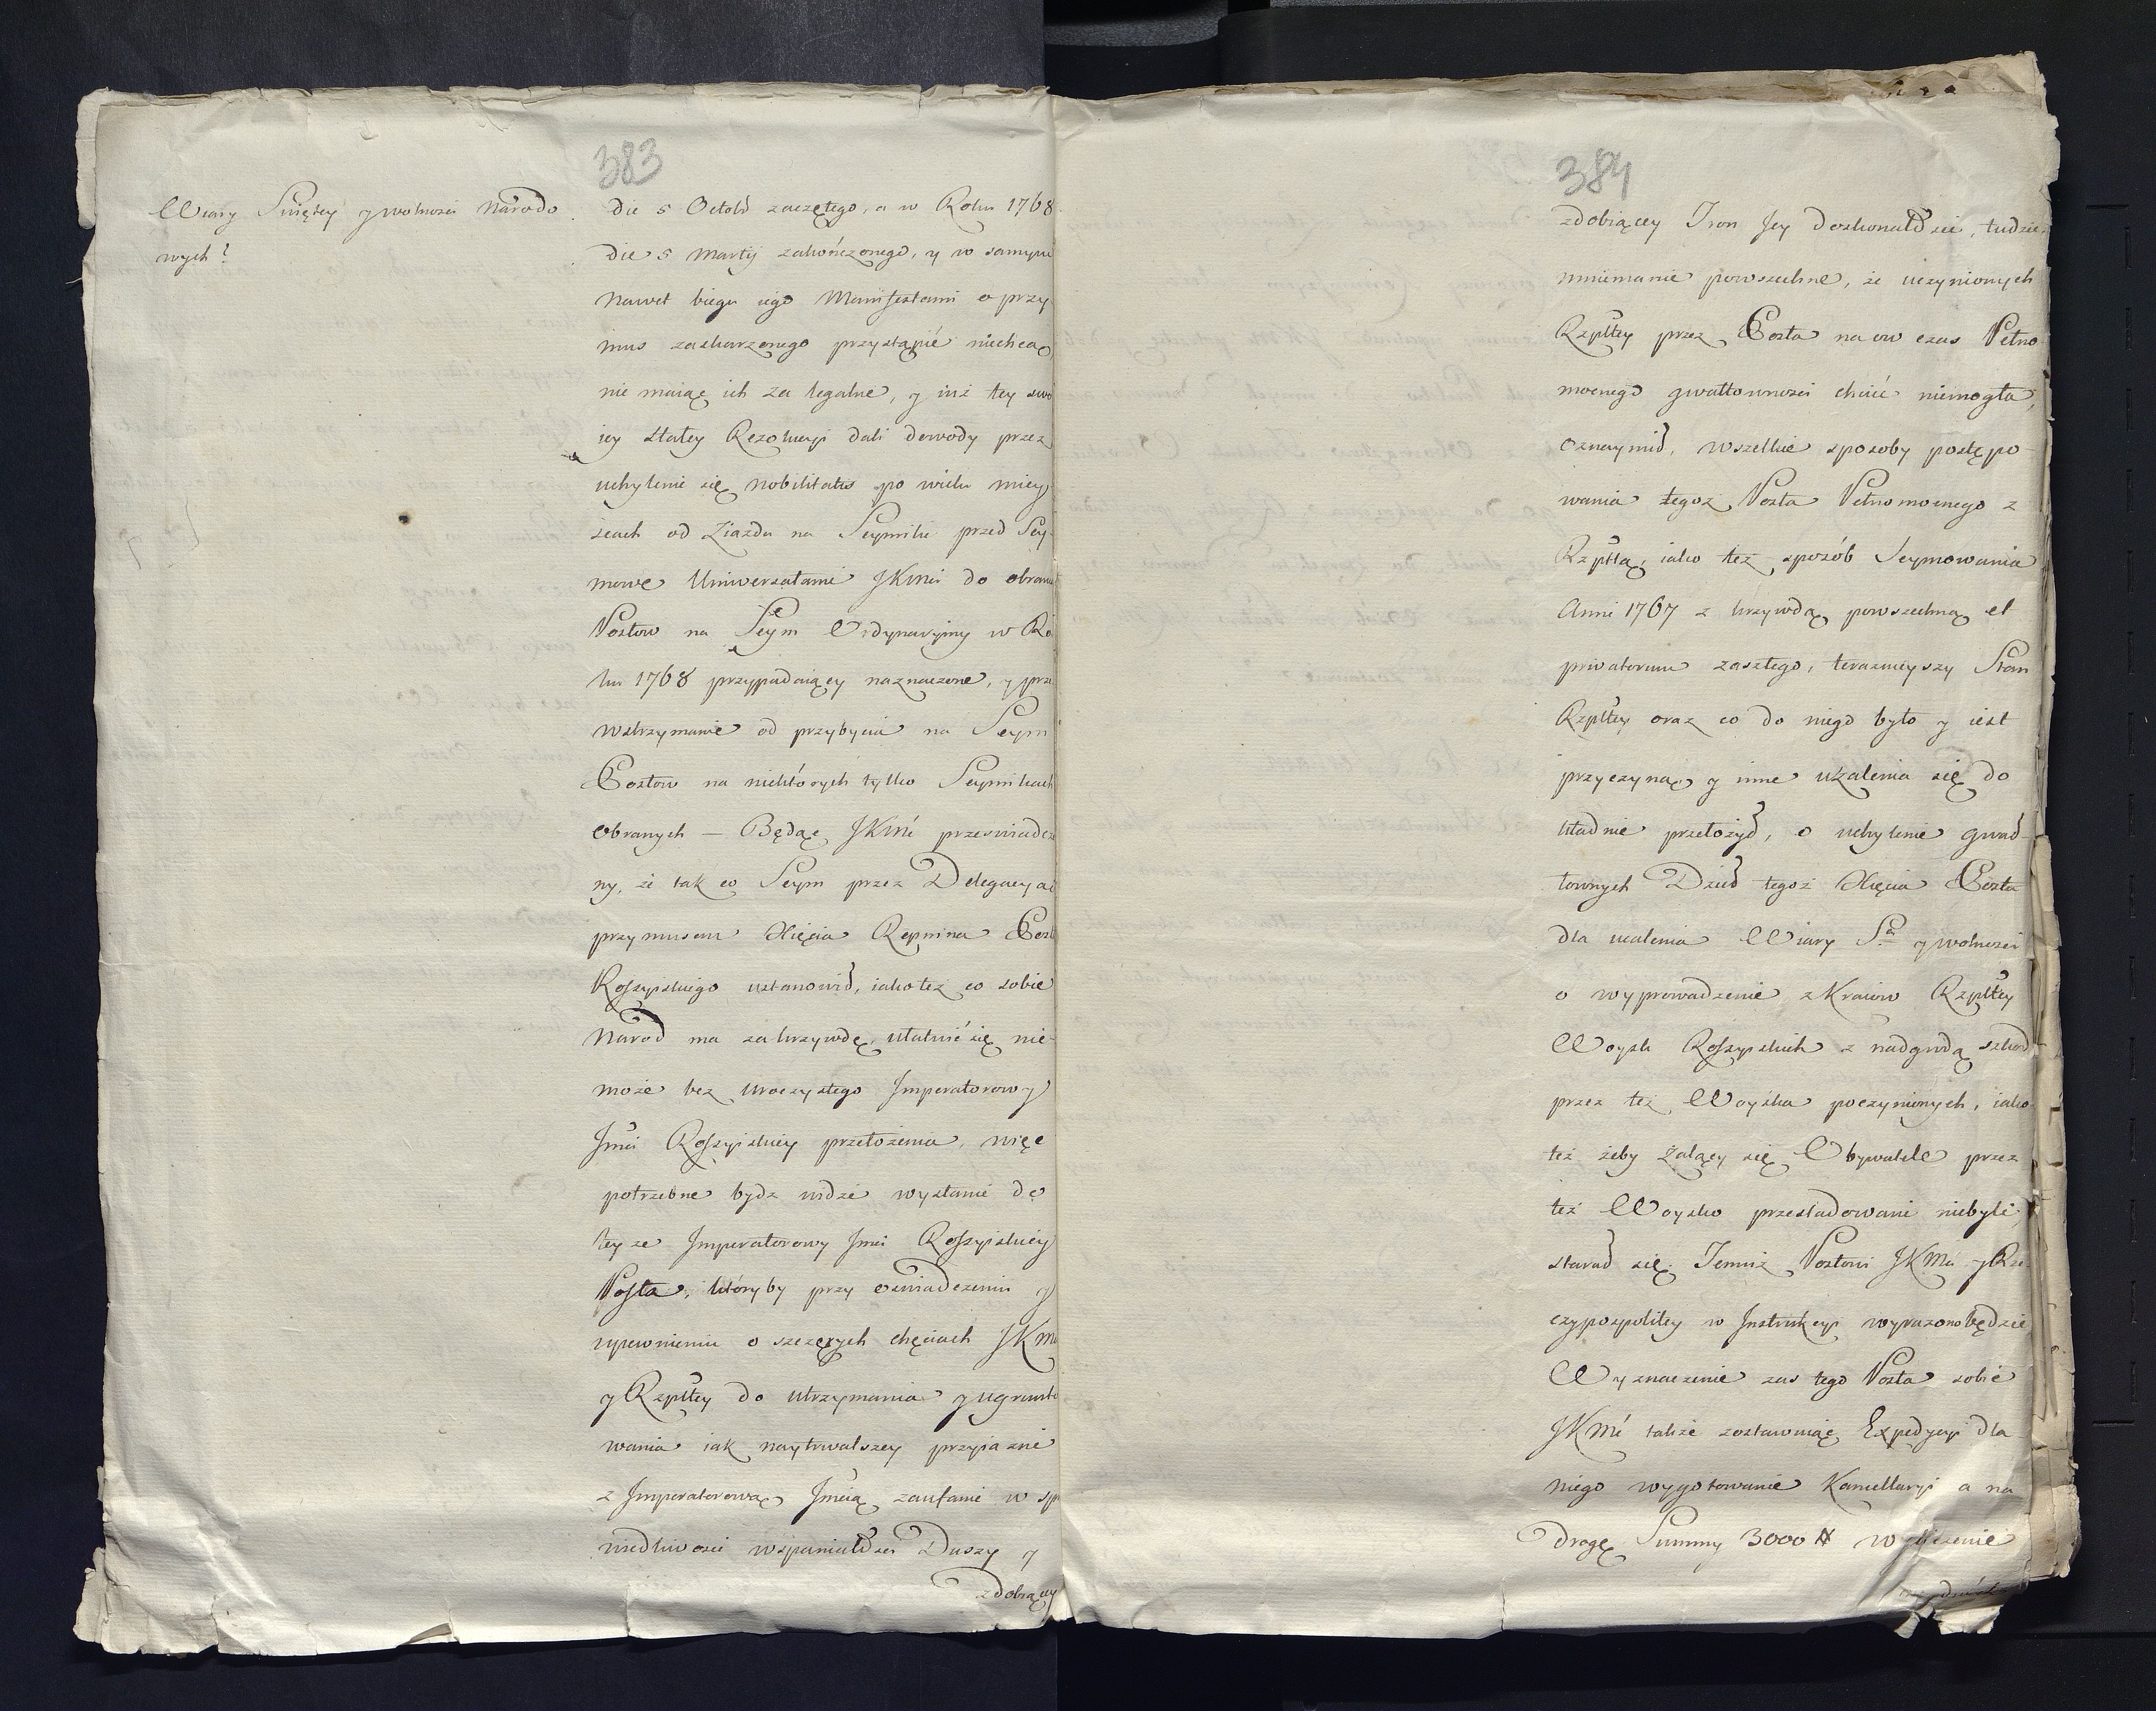 383
Wiary Swiętey y wolnosci Narodo
wych?
die 5 Octobr zaczętego, a w Roku 1768
die 5 Martij zakończonego, y w samym
nawet biegu iego Manifestami o przy
mus zaskarzonego przystąpić niechcąc,
nie maiąc ich za legalne, y iuż tey swo
iey stałey Rezolucyi dali dowody przez
uchylenie się Nobilitatis po wielu miey
scach od Ziazdu na Seymiki przed Sey
mowe Uniwersałami JKMci do obrania
Posłow na Seym Ordynaryiny w Ro
ku 1768 przypadaiący naznaczone, y prze
wstrzymanie od przybycia na Seym
Posłow na niektórych tylko Seymikach
Obranych — Będąc JKMć przeswiadczo
ny, że tak co Seym przez Delegacyą
przymusem Xięcia Repnina Posła
Rossyiskiego ustanowił, iako też co sobie
Naród ma za krzywdę, ułatwić się nie-
może bez uroczystego Imperatorowy
Jmci Rossyiskiey przełożenia, więc
potrzebne bydz widzi wysłanie do
teyże Imperatorowy Jmci Rossyiskiey
Posła, któryby przy oswiadczeniu y
upewnieniu o szczerych chęciach JKMci
y Rzpltey do utrzymania y ugrunto
wania iak naytrwalszey przyiazni
z Imperatorową Jmcią zaufanie w spra
wiedliwosci wspaniałosci Duszy y
zdobiący
384
zdobiącey Tron Jey doskonałosci, tudzież
mniemanie powszechne, że uczynionych
Rzpltey przez Posła na ow czas Pełno
mocnego gwałtownosci chcieć niemogła,
oznaymił, wszelkie sposoby postępo
wania tegoz Posła Pełnomocnego z
Rzpltą, iako też sposób Seymowania
Anni 1767 z krzywdą powszechną et
privatorum zaszłego, teraznieyszy Stan
Rzpltey oraz co do niego było y iest
przyczyną y inne użalenia się do
kładnie przełożył, o uchylenie gwał-
townych Dzieł tegoż Xięcia Posła
dla ucalenia Wiary Sᵃ y wolnosci
o wyprowadzenie z Kraiów Rzpltey
Woysk Rossyiskich z nadgrodą szkod
przez też Woyska poczynionych, iako-
też żeby żalący się Obywatele przez
też Woysko przesladowani niebyli,
starał się. Temuż Posłowi JKMci y Rze-
czypospolitey w Instrukcyi wyrazono będzie
Wyznaczenie zas tego Posła sobie
JKMć także zostawuiąc Expedycyi dla
niego wygotowanie Kancellaryi a na
drogę Summy 3000 # wyliczenie